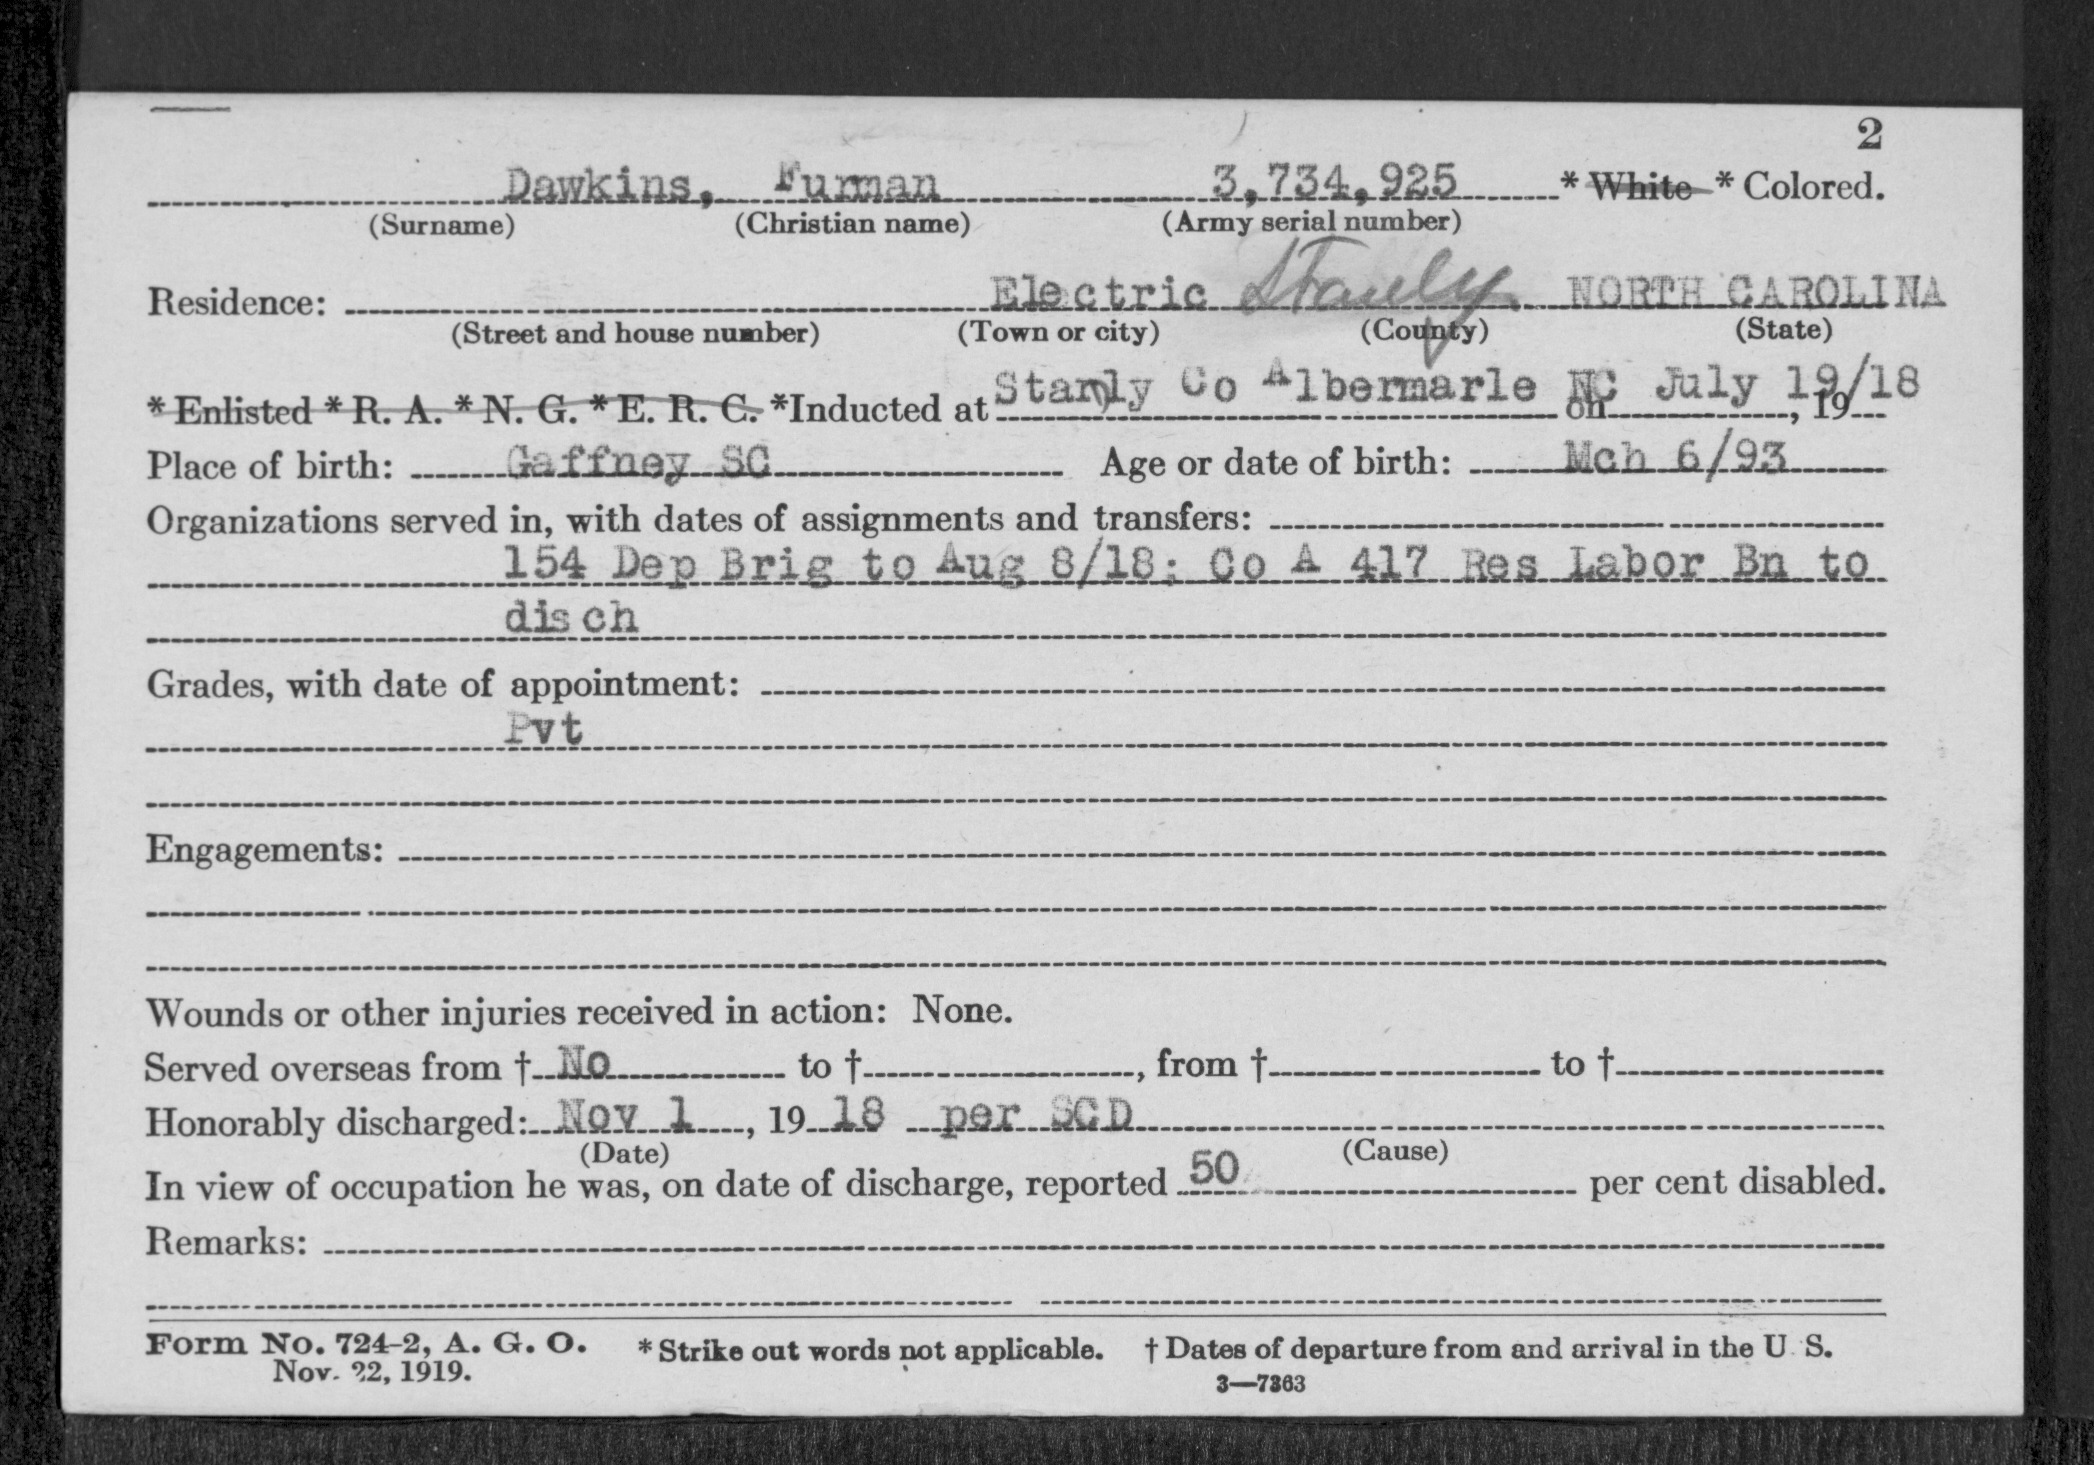 2
Dawkins, Furman 3,734,925 * White * Colored.
(Surname) (Christian name) (Army serial number)
Residence: Electric Stanly NORTH CAROLINA
(Street and house number) (Town or city) (County) (State)
* Enlisted * R. A. * N. G. * E. R. C. *Inducted at Stanly Co Albermarle NC on July 19/18, 19
Place of birth: Gaffney SC Age or date of birth: Mch 6/93
Organizations served in, with dates of assignments and transfers:
154 Dep Brig to Aug 8/18; Co A 417 Res Labor Bn to
disch
Grades, with date of appointment:
Pvt
Engagements:
Wounds or other injuries received in action: None.
Served overseas from † No to †, from † to †
Honorably discharged: Nov 1, 19 18 per SCD
(Date) (Cause)
In view of occupation he was, on date of discharge, reported 50 per cent disabled.
Remarks:
Form No. 724-2, A. G. O. * Strike out words not applicable. † Dates of departure from and arrival in the U. S.
Nov. 22, 1919. 3—7363